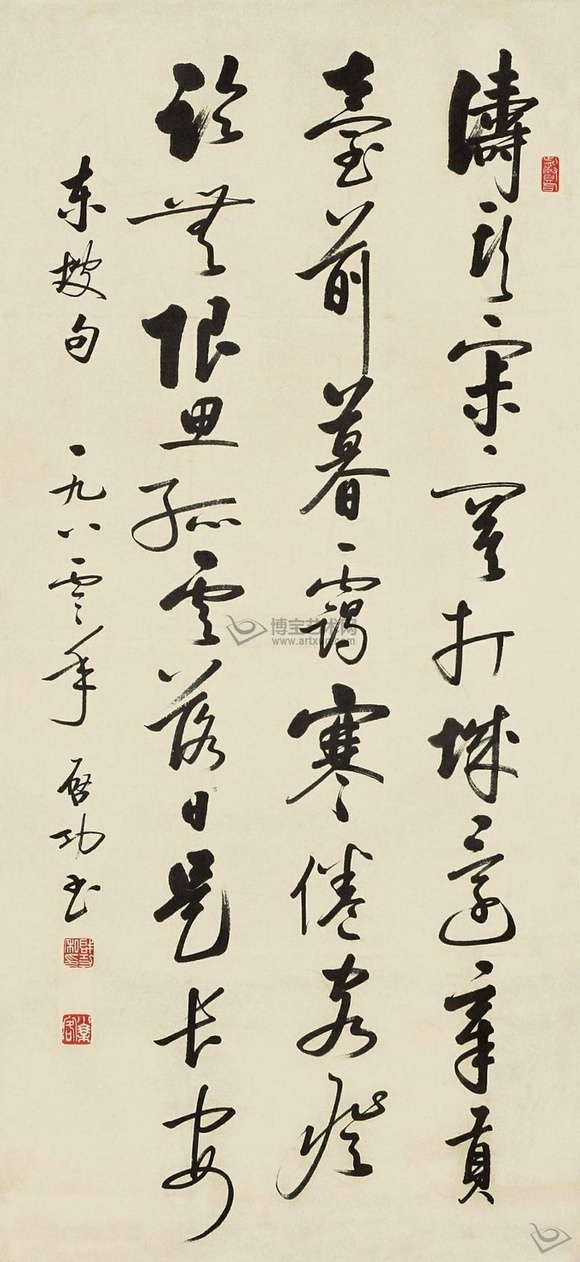 濤頭寂寞打城還章貢
臺前暮靄寒倦客登
臨無限思孤雲落日是長安
东坡句 一九八零年 启功书
博宝艺术网
www.artxun.com